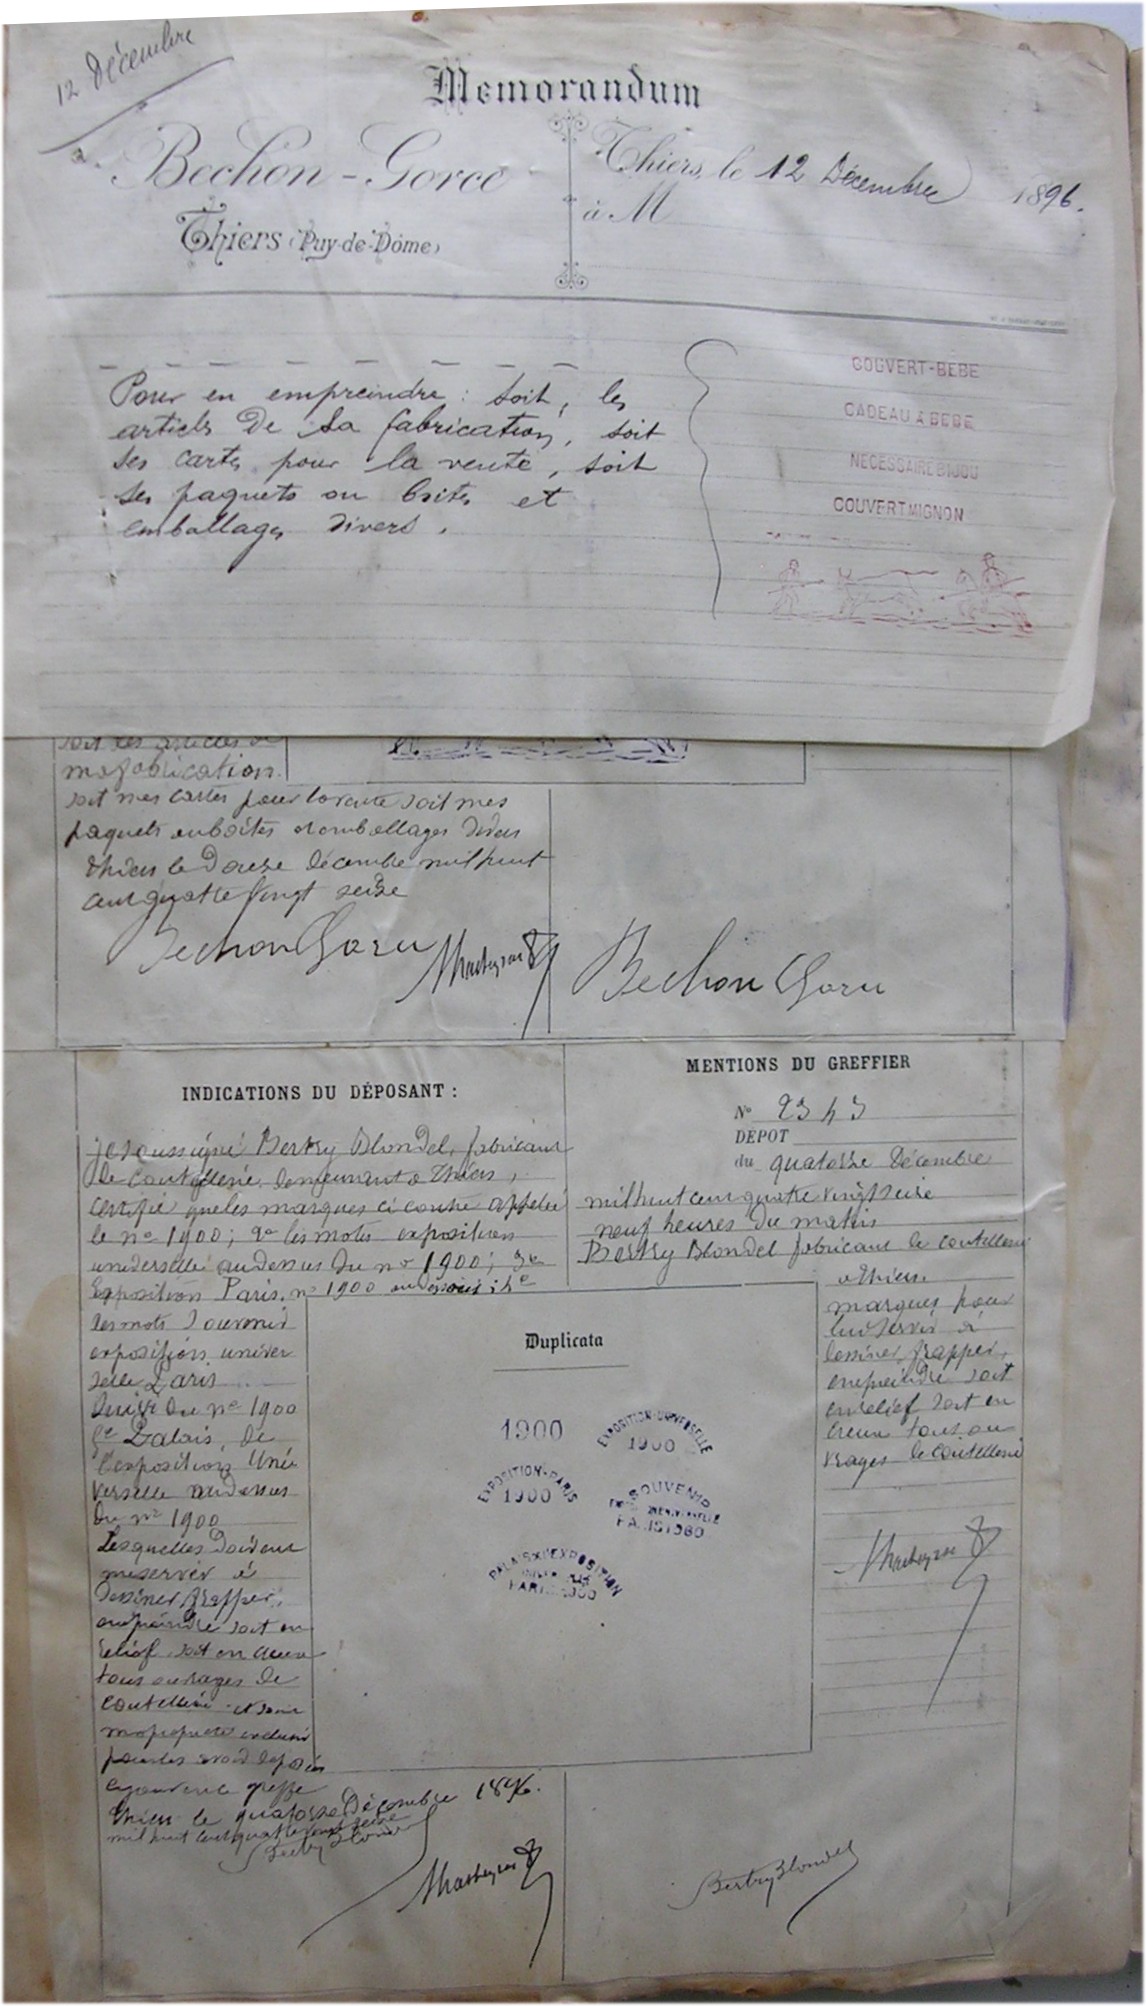 12 Décembre
Memorandum
Bechon-Gorce
Thiers, le 12 Décembre 1896.
à M
Thiers (Puy-de-Dôme)
Pour en empreindre : soit, les
articles De sa fabrication, soit
ses cartes pour la vente, soit
ses paquets ou boites et
emballages divers.
COUVERT-BÉBÉ
CADEAU A BÉBÉ
NÉCESSAIRE BIJOU
COUVERT MIGNON
soit les articles de
ma fabrication.
soit mes cartes pour la vente soit mes
paquets ou boîtes et emballages divers
Thiers le Douze Décembre mil huit
cent quatre vingt seize
Bechon Gorce
Bechon Gorce
INDICATIONS DU DÉPOSANT :
Je soussigné Bertry Blondel, fabricant
de coutellerie, demeurant à Thiers,
certifie que les marques ci contre appelées
le no 1900; 2e les mots exposition
universelle au dessus du no 1900; 3e
Exposition Paris, no 1900 au dessous; 4e
les mots Souvenir
exposition univer
selle Paris
suivi du no 1900
5e Palais de
l'exposition Uni
verselle au dessus
du no 1900
Lesquelles doivent
me servir à
Dessiner, frapper,
empreindre soit en
relief soit en creux
tous ouvrages de
coutellerie et sont
ma propriété exclusive
pour les avoir déposés
au greffe
Thiers le quatorze Décembre 1896.
mil huit cent quatre vingt seize
Bertry Blondel
MENTIONS DU GREFFIER
No 2343
DÉPOT
du quatorze Décembre
mil huit cent quatre vingt seize
neuf heures du matin
Bertry Blondel fabricant de coutellerie
à Thiers.
marques pour
lui servir à
dessiner, frapper,
empreindre soit
en relief soit en
creux tous ou
vrages de coutellerie
Duplicata
1900
EXPOSITION-UNIVERSELLE
1900
EXPOSITION-PARIS
1900
SOUVENIR
PARIS 1900
PALAIS DE L'EXPOSITION
PARIS 1900
Bertry Blondel